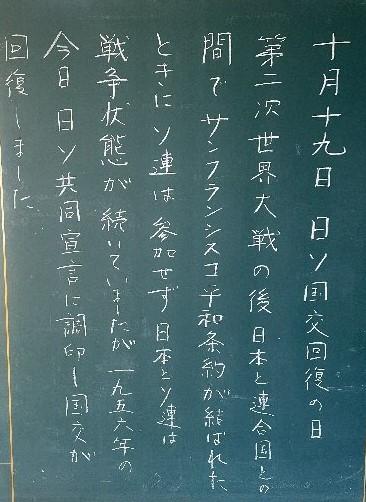 十月十九日 日ソ国交回復の日
第二次世界大戦の後日本と連合国との
間でサンフランシスコ平和条約が結ばれた
ときにソ連は参加せず日本とソ連は
戦争状態が続いていましたが一九五六年の
今日日ソ共同宣言に調印し国交が
回復しました